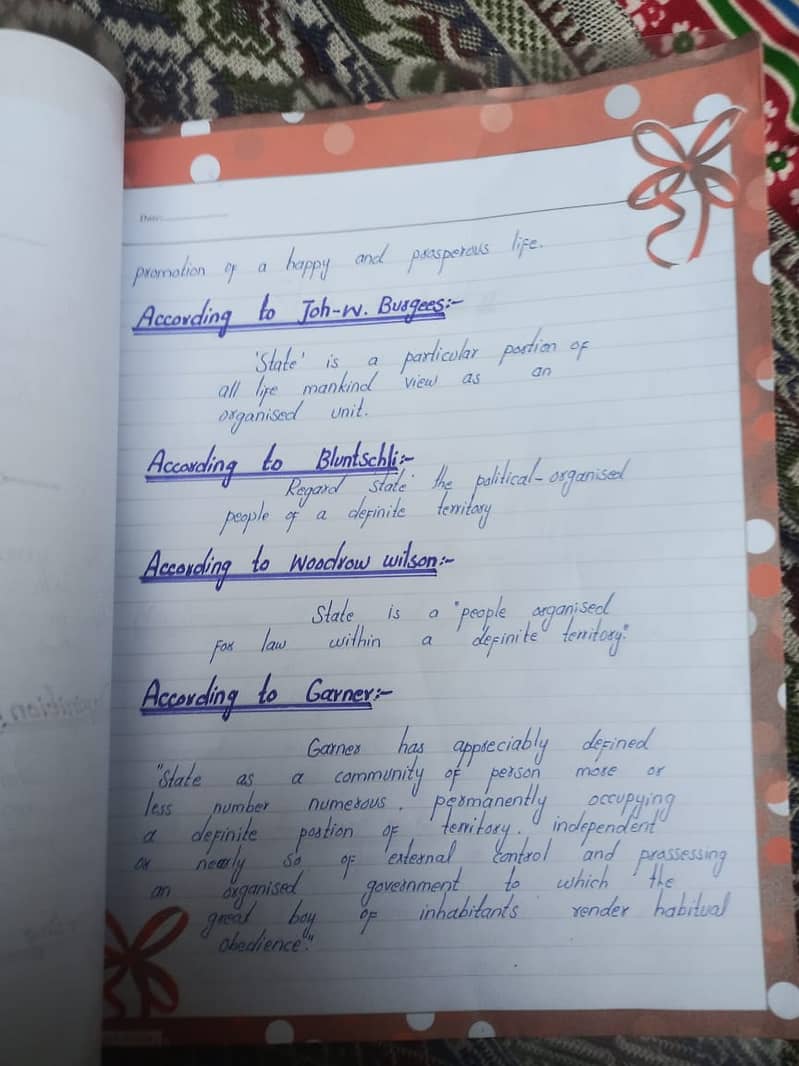 Date:
promotion of a happy and prosperous life.
According to Joh-W. Burgees:-
'State' is a particular portion of
all life mankind view as an
organised unit.
According to Bluntschli:-
Regard 'state' the political-organised
people of a definite territory
According to Woodrow wilson:-
State is a "people organised
For law within a definite territory."
According to Garner:-
Garner has appreciably defined
"State as a community of person more or
less number numerous, permanently occupying
a definite portion of territory. independent
or nearly so of external control and prossessing
an organised government to which the
great boy of inhabitants render habitual
obedience".